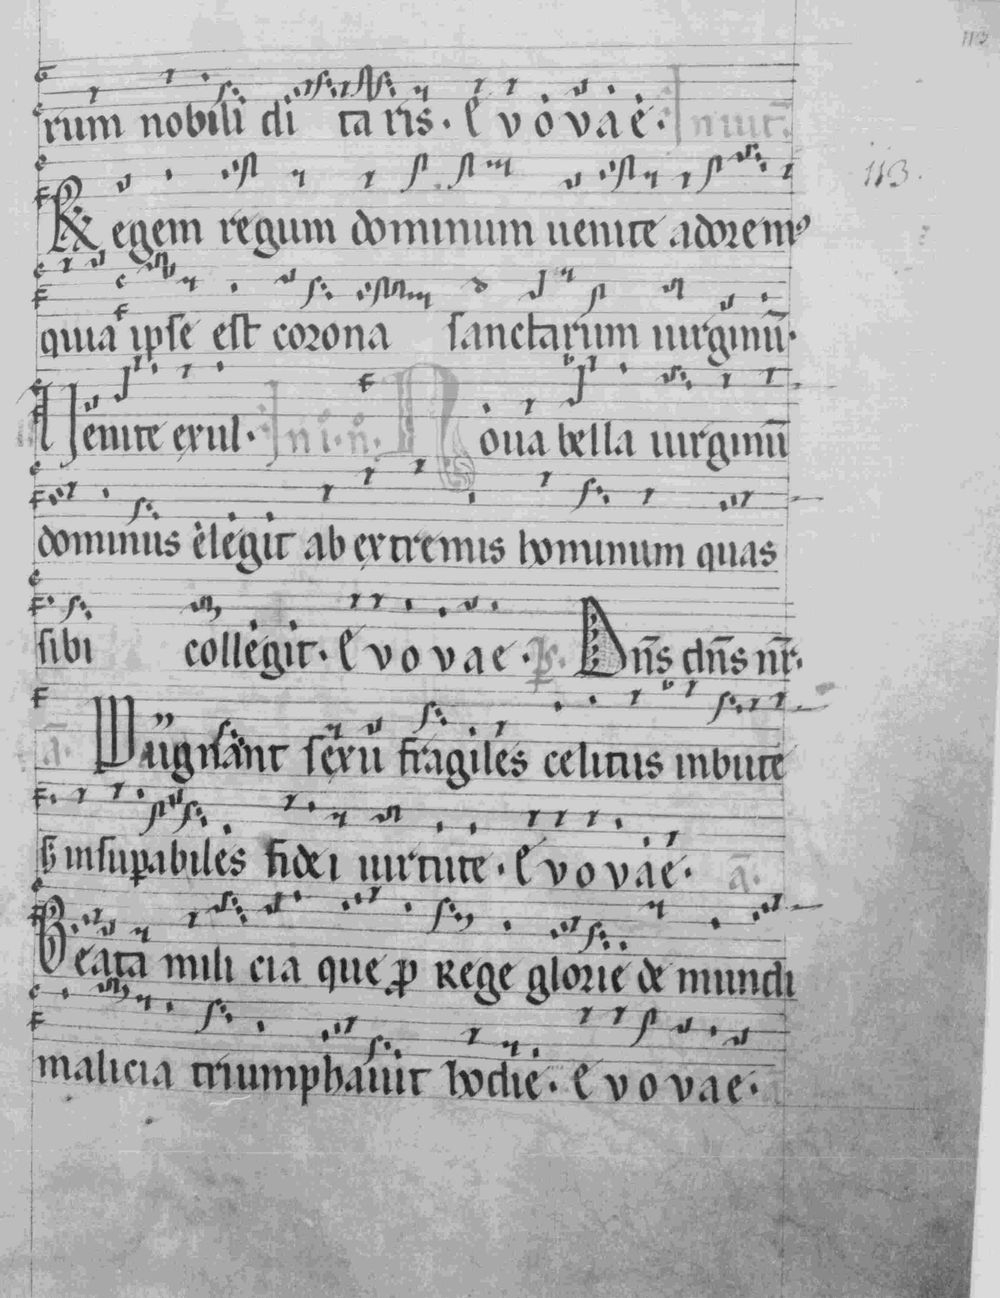 113
rum nobili di ta ris. E v o v a e. Inuit.
113.
Regem regum dominum uenite adorem9
quia ipse est corona sanctarum uirginū.
Uenite exul. In i. n̄. Noua bella uirginū
dominus elegit ab extremis hominum quas
sibi collegit. E v o v a e. ps. Dn̄s dn̄s nr̄.
a. Pugnant sexu fragiles celitus inbute
s insuꝑabiles fidei uirtute. E v o v a e. a.
Beata mili cia que ꝓ Rege glorie de mundi
malicia triumphauit hodie. E v o v a e.